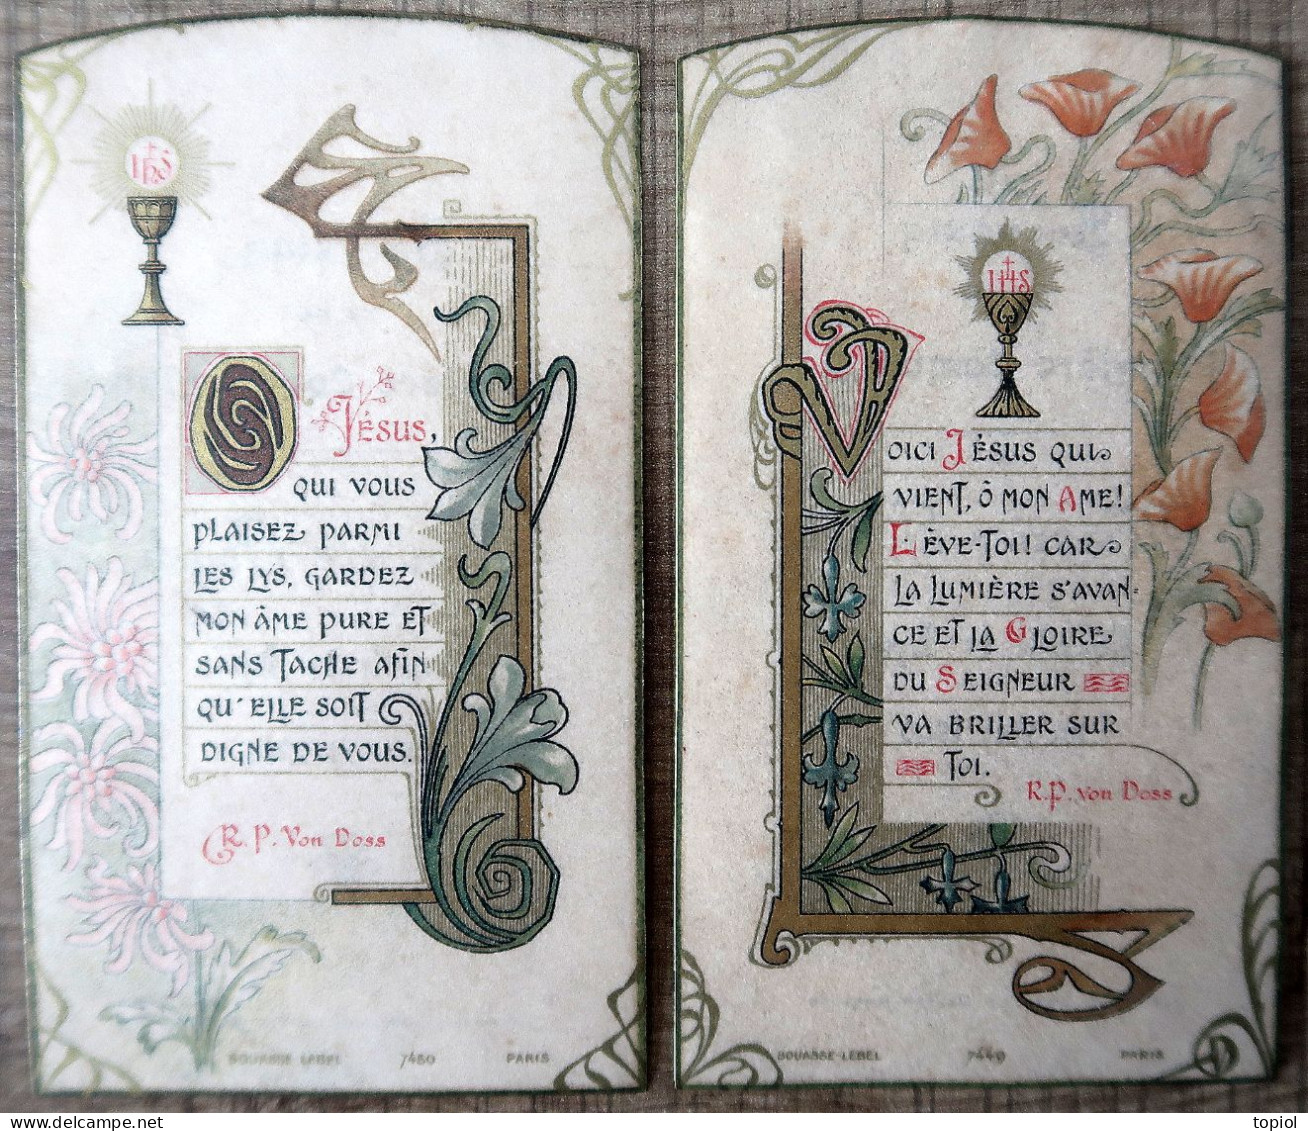 IHS
O JÉSUS,
QUI VOUS
PLAISEZ PARMI
LES LYS, GARDEZ
MON ÂME PURE ET
SANS TACHE AFIN
QU'ELLE SOIT
DIGNE DE VOUS.
R. P. Von Doss
BOUASSE-LEBEL 7450 PARIS
IHS
VOICI JÉSUS QUI
VIENT, Ô MON AME!
LÈVE-TOI! CAR
LA LUMIÈRE S'AVAN-
CE ET LA GLOIRE
DU SEIGNEUR
VA BRILLER SUR
TOI.
R.P. von Doss
BOUASSE-LEBEL 7449 PARIS
delcampe.net
topiol